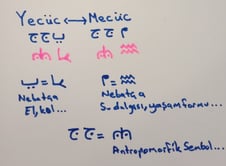 Yecüc ⟷ Mecüc
ب ج ج م ج ج
ب =
م =
Nebatça Nebatça
El, kol... Su dalgası, yaşam formu...
ج ج =
Antropomorfik Sembol...